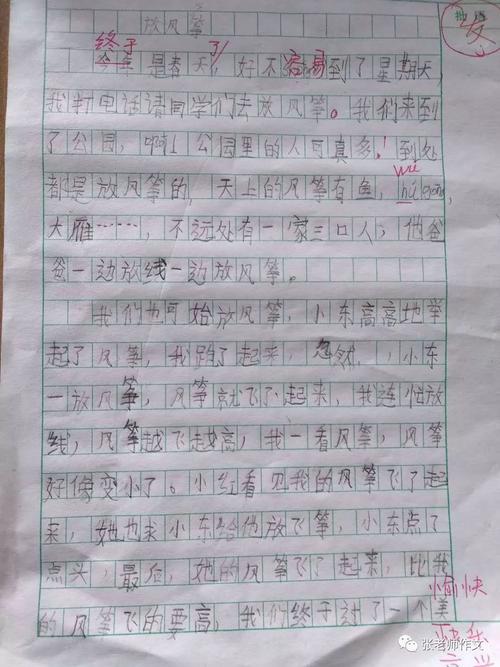 放风筝
终于 了
今年是春天,好不容易到了星期天,
我打电话请同学们去放风筝。我们来到
了公园,啊!公园里的人可真多!到处
wú
都是放风筝的,天上的风筝有鱼,
大雁……,不远处有一家三口人,他爸
爸一边放线一边放风筝。
我们也可始放风筝,小东高高地举
起了风筝,我跑了起来,忽然,小东
一放风筝,风筝就飞了起来,我连忙放
线,风筝越飞越高,我一看风筝,风筝
好像变小了。小红看见我的风筝飞了起
来,她也求小东给他放飞筝,小东点了
点头,最后,她的风筝飞了起来,比我
愉快
的风筝飞的要高,我们终于过了一个美
快乐
张老师作文